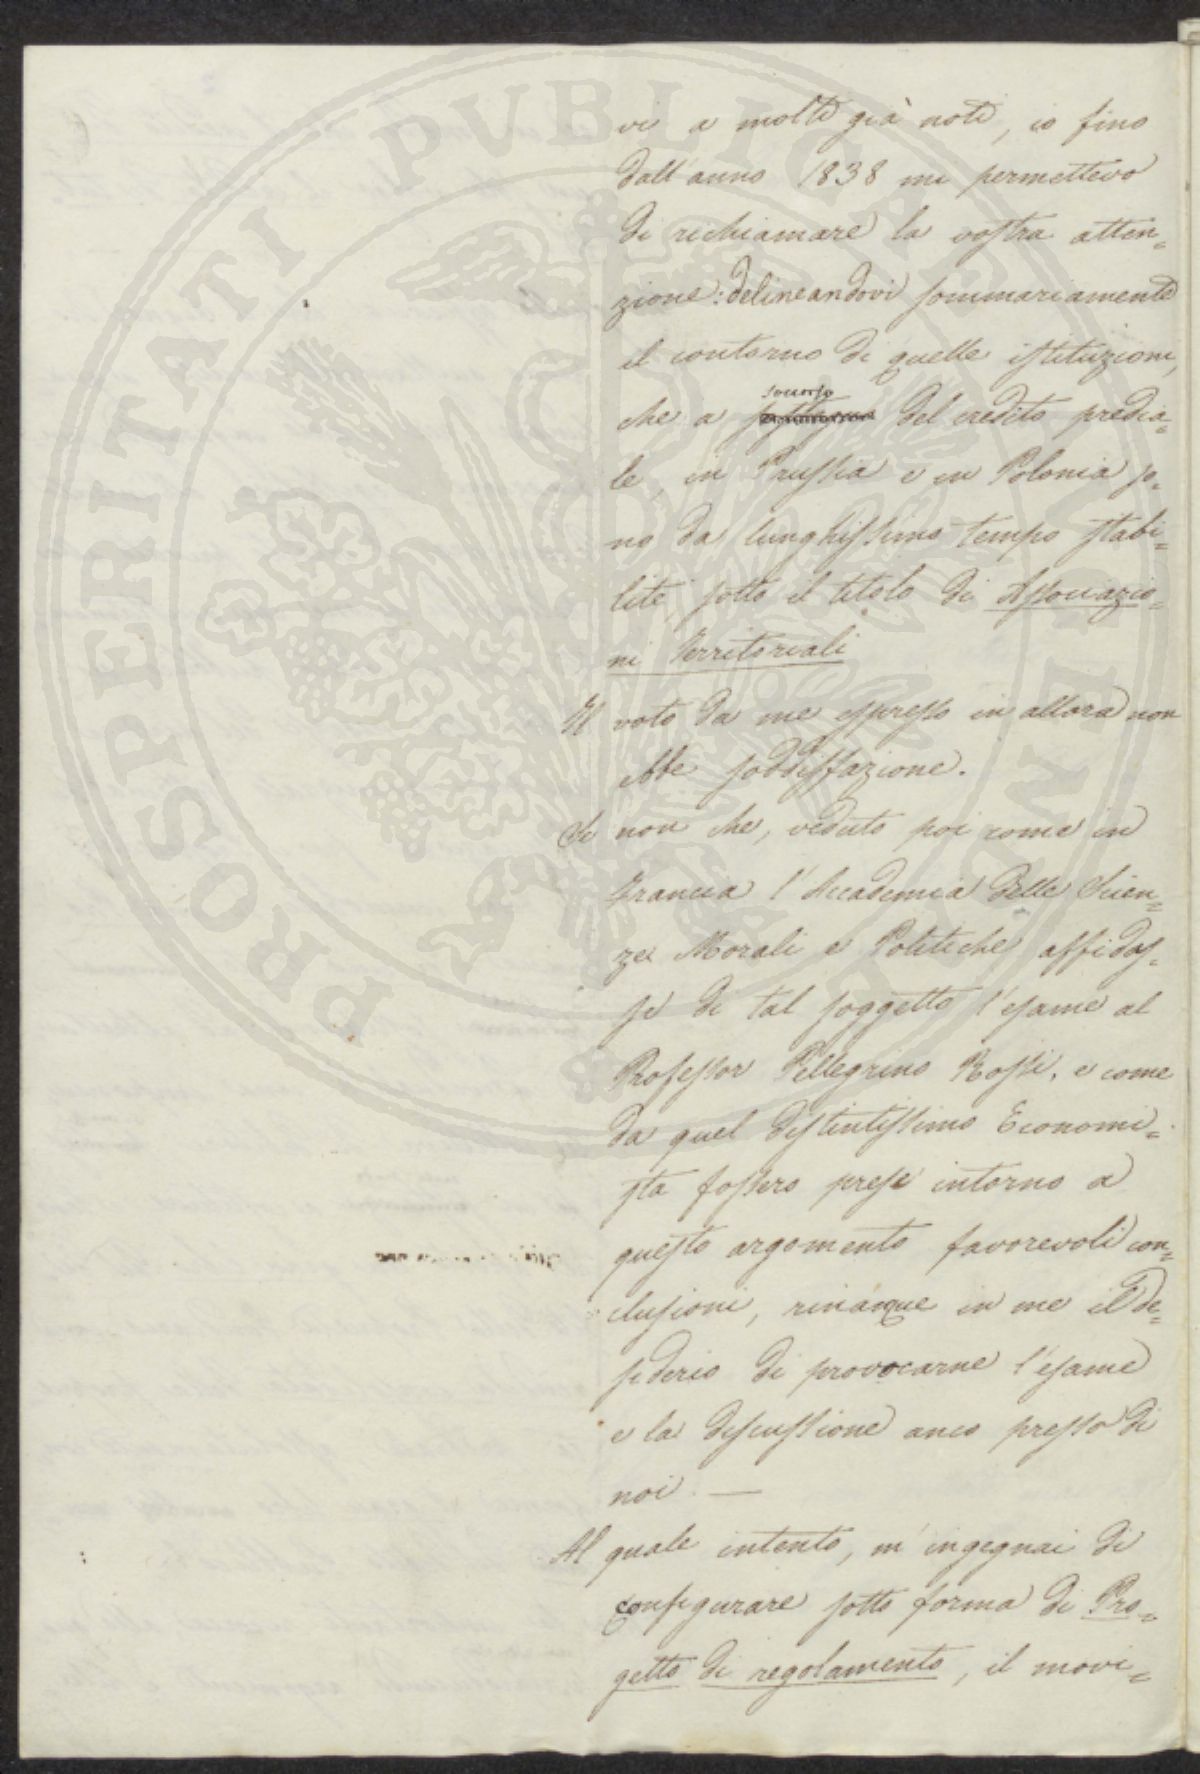 vi a molti già noti, io fino
dall'anno 1838 mi permettevo
di richiamare la vostra atten=
zione: delineandovi sommariamente
il contorno di quelle istituzioni,
soccorso
che a sostegno del credito predia=
le, in Prussia e in Polonia so=
no da lunghissimo tempo stabi=
lite, sotto il titolo di Associazio=
ni Territoriali
Il voto da me espresso in allora non
ebbe soddisfazione.
Se non che, veduto poi come in
Francia l'Accademia delle Scien=
ze Morali e Politiche affidas=
se di tal soggetto l'esame al
Professor Pellegrino Rossi, e come
da quel distintissimo Economi=
sta fossero prese intorno a
questo argomento favorevoli con=
clusioni, rinacque in me il de=
siderio di provocarne l'esame
e la discussione anco presso di
noi. —
Al quale intento, m'ingegnai di
configurare sotto forma di Pro=
getto di regolamento, il movi=
PROSPERITATI PUBLICAE AUGENDAE